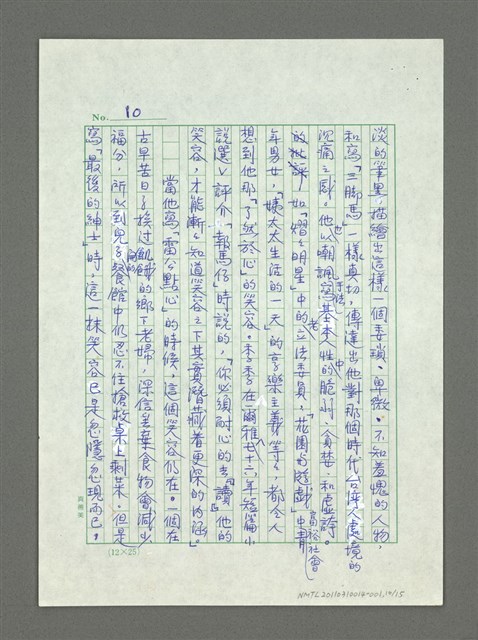 No. 10
淡的筆墨，描繪出這樣一個委瑣、卑微、不知羞愧的人物，
和寫「三脚馬」一樣真切，傳達出他對那個時代台湾人處境的
沉痛之感。他也以嘲諷寫基本人性的脆弱、貪婪、和虛論。
如「熠熠明星」中的老立法委員，「花園与遊戲」中高裕社會青
年男女，「姨太太生活的一天」的享樂主義等等，都令人
想到他那「了然於心」的笑容。季季在爾雅七十六年短篇小
說選，評介「報馬仔」時說的，「你必須耐心的去『讀』他的
笑容，才能漸漸知道笑容之下其實潛藏着更深的內涵。」
當他寫「雷公點心」的時候，這個笑容仍在。一個在
古早苦日子挨过飢餓的鄉下老婦，深信丟棄食物會減少
福分，所以到兒子的餐館中仍忍不住搶救桌上剩菜。但是
寫「最後的紳士」時，這一抹笑容已是忽隱忽現而已，
(12×25)
NMTL20110310014-001,10/15